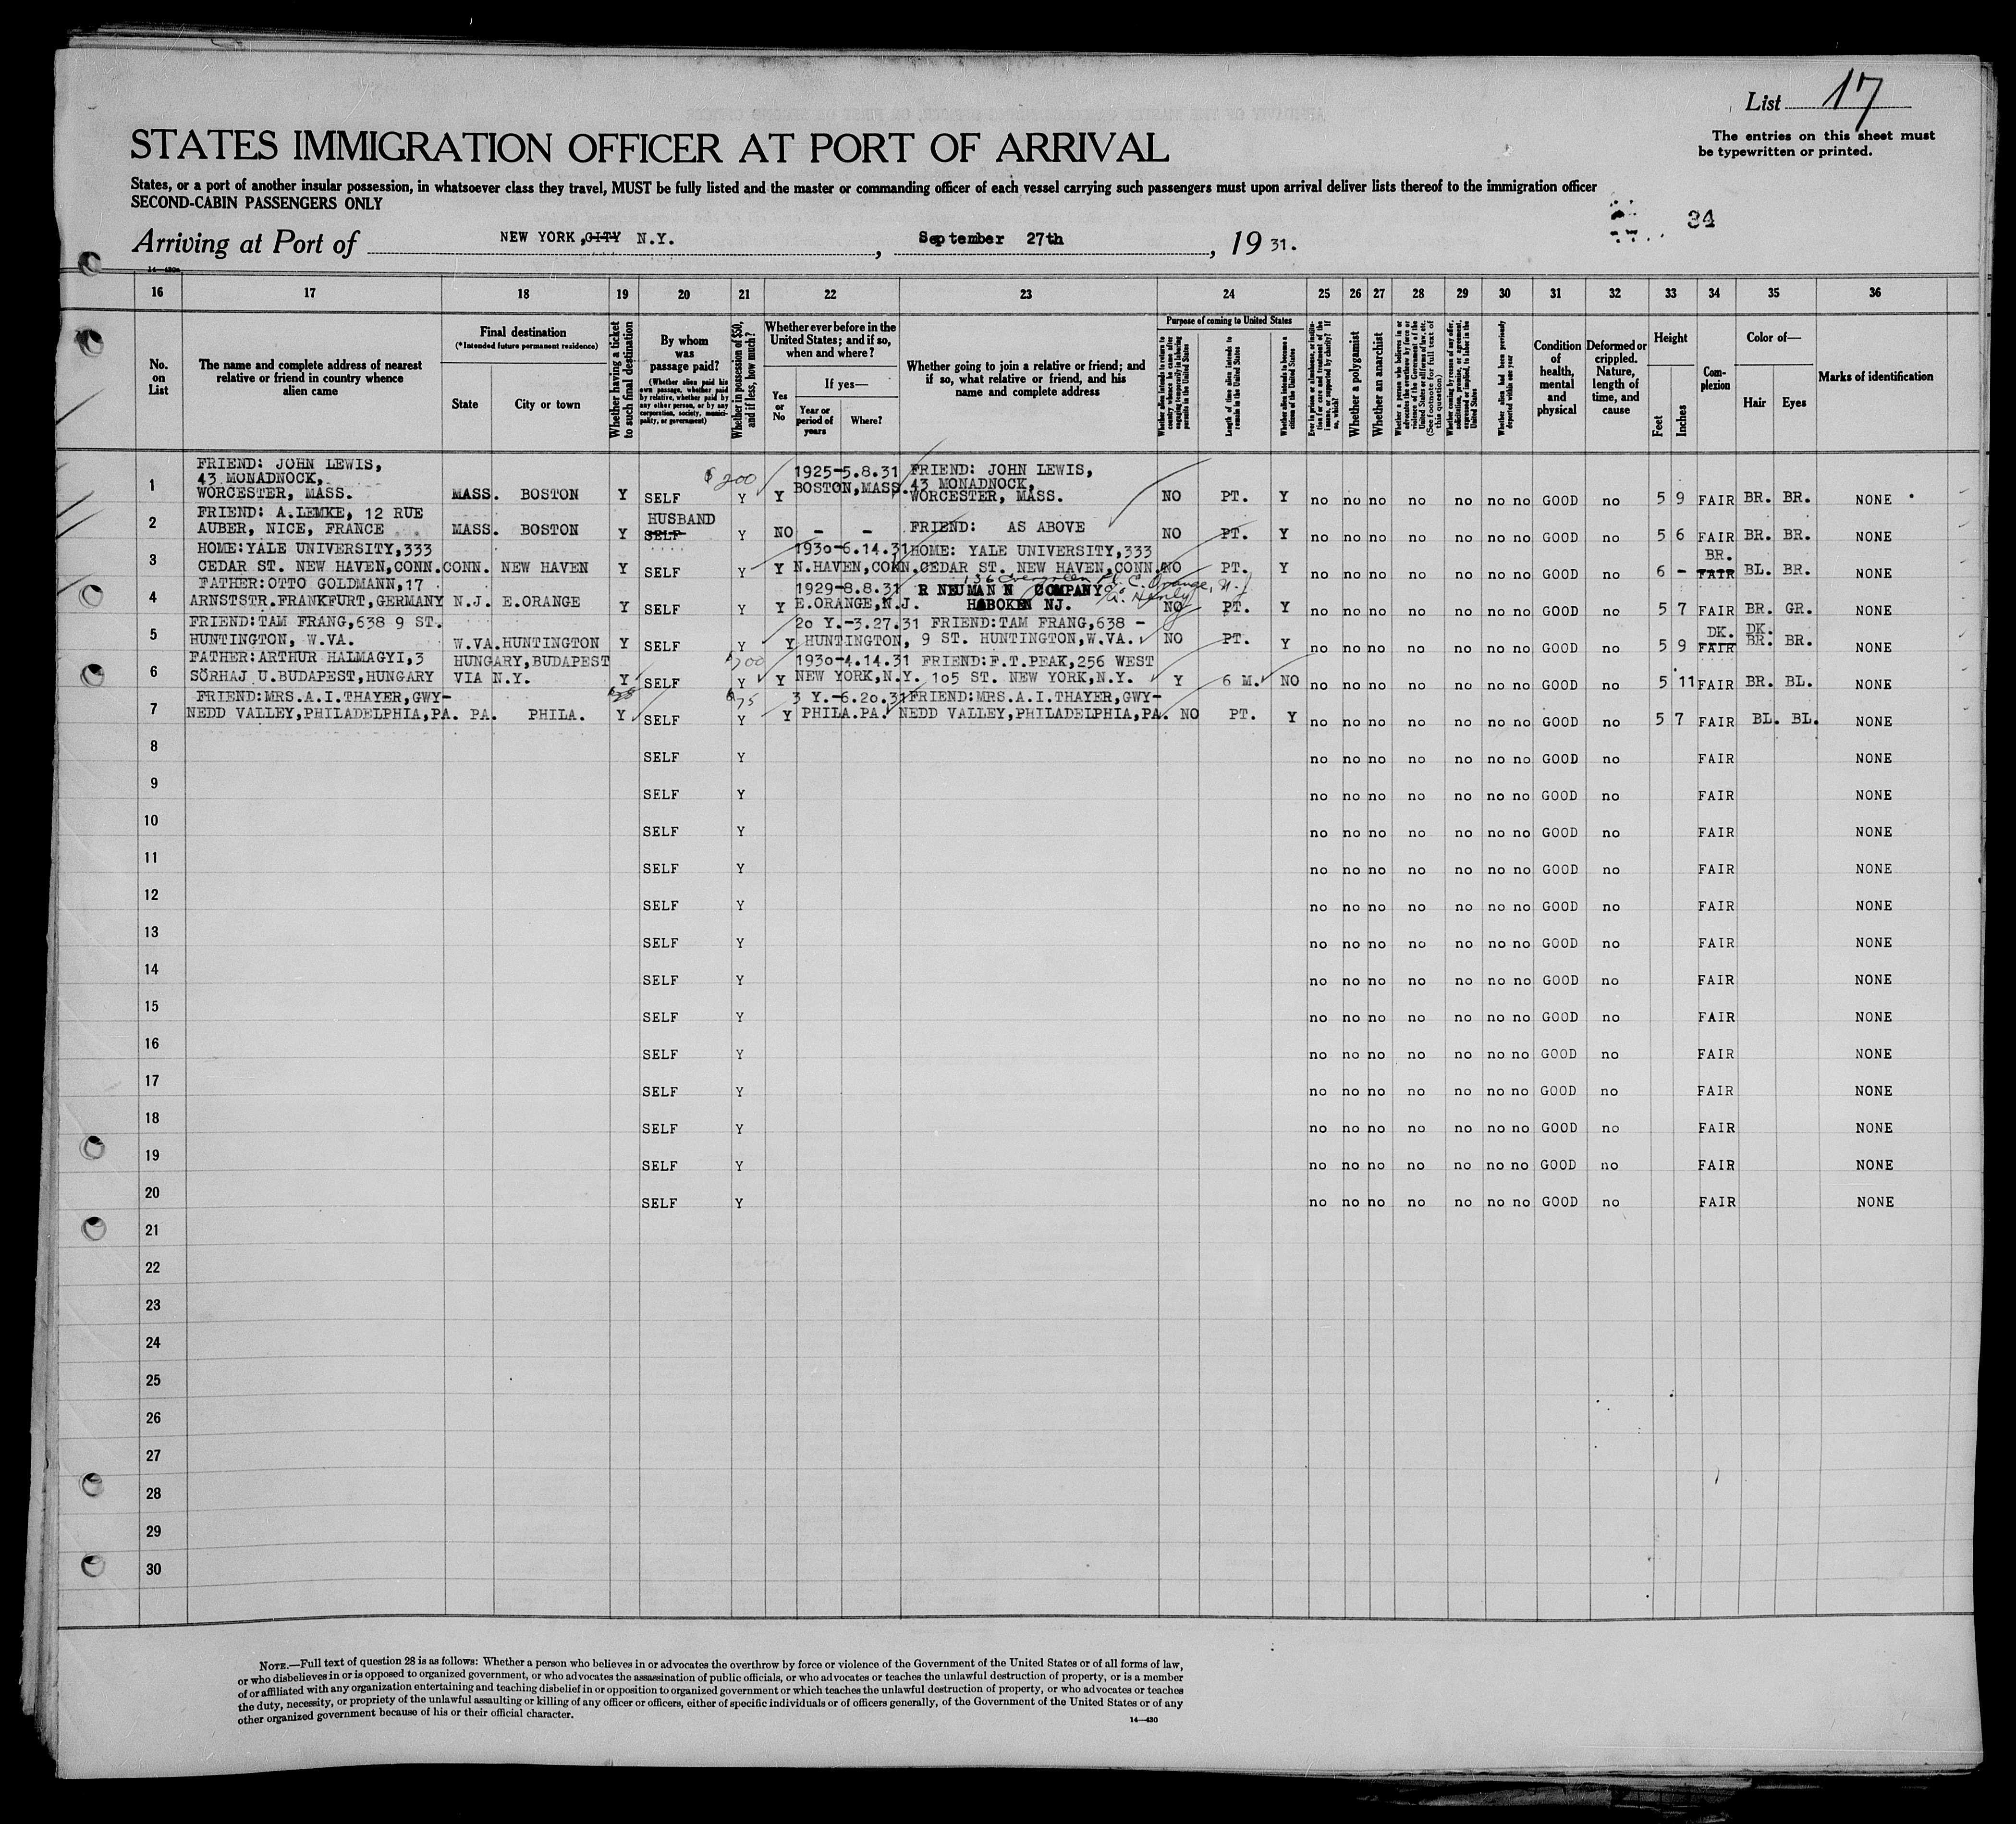 List 17
The entries on this sheet must
be typewritten or printed.
STATES IMMIGRATION OFFICER AT PORT OF ARRIVAL
States, or a port of another insular possession, in whatsoever class they travel, MUST be fully listed and the master or commanding officer of each vessel carrying such passengers must upon arrival deliver lists thereof to the immigration officer
SECOND-CABIN PASSENGERS ONLY
34
Arriving at Port of NEW YORK, CITY N.Y., September 27th, 19 31.
14—430a
16 17 18 19 20 21 22 23 24 25 26 27 28 29 30 31 32 33 34 35 36
No. on List
The name and complete address of nearest relative or friend in country whence alien came
Final destination
(*Intended future permanent residence)
State
City or town
Whether having a ticket to such final destination
By whom was passage paid?
(Whether alien paid his own passage, whether paid by relative, whether paid by any other person, or by any corporation, society, municipality, or government)
Whether in possession of $50, and if less, how much?
Whether ever before in the United States; and if so, when and where?
Yes or No
If yes—
Year or period of years
Where?
Whether going to join a relative or friend; and if so, what relative or friend, and his name and complete address
Purpose of coming to United States
Whether alien intends to return to country whence he came after engaging temporarily in laboring pursuits in the United States
Length of time alien intends to remain in the United States
Whether alien intends to become a citizen of the United States
Ever in prison or almshouse, or institution for care and treatment of the insane, or supported by charity? If so, which?
Whether a polygamist
Whether an anarchist
Whether a person who believes in or advocates the overthrow by force or violence of the Government of the United States or all forms of law, etc. (See footnote for full text of this question)
Whether coming by reason of any offer, solicitation, promise, or agreement, expressed or implied, to labor in the United States
Whether alien had been previously deported within one year
Condition of health, mental and physical
Deformed or crippled. Nature, length of time, and cause
Height
Feet
Inches
Complexion
Color of—
Hair
Eyes
Marks of identification
FRIEND: JOHN LEWIS, $200 1925-5.8.31 FRIEND: JOHN LEWIS,
43 MONADNOCK, BOSTON, MASS. 43 MONADNOCK,
1 WORCESTER, MASS. MASS. BOSTON Y SELF Y Y WORCESTER, MASS. NO PT. Y no no no no no no no GOOD no 5 9 FAIR BR. BR. NONE
FRIEND: A.LEMKE, 12 RUE HUSBAND
2 AUBER, NICE, FRANCE MASS. BOSTON Y SELF Y NO - - FRIEND: AS ABOVE NO PT. Y no no no no no no no GOOD no 5 6 FAIR BR. BR. NONE
HOME:YALE UNIVERSITY,333 1930-6.14.31 HOME: YALE UNIVERSITY,333 BR.
3 CEDAR ST. NEW HAVEN,CONN. CONN. NEW HAVEN Y SELF Y Y N.HAVEN,CONN. CEDAR ST. NEW HAVEN,CONN. NO PT. Y no no no no no no no GOOD no 6 - FAIR BL. BR. NONE
136 Evergreen Pl. E. Orange, N.J.
FATHER:OTTO GOLDMANN,17 1929-8.8.31 R NEUMANN COMPANY
4 ARNSTSTR.FRANKFURT,GERMANY N.J. E.ORANGE Y SELF Y Y E.ORANGE,N.J. HOBOKEN NJ. NO PT. Y no no no no no no no GOOD no 5 7 FAIR BR. GR. NONE
FRIEND:TAM FRANG,638 9 ST. 20 Y.-3.27.31 FRIEND:TAM FRANG,638 - DK. DK.
5 HUNTINGTON, W.VA. W.VA. HUNTINGTON Y SELF Y Y HUNTINGTON, 9 ST. HUNTINGTON,W.VA. NO PT. Y no no no no no no no GOOD no 5 9 FAIR BR. BR. NONE
FATHER:ARTHUR HALMAGYI,3 HUNGARY,BUDAPEST $200 1930-4.14.31 FRIEND:F.T.PEAK,256 WEST
6 SÖRHAJ U.BUDAPEST,HUNGARY VIA N.Y. Y SELF Y Y NEW YORK,N.Y. 105 ST. NEW YORK,N.Y. Y 6 M. NO no no no no no no no GOOD no 5 11 FAIR BR. BL. NONE
FRIEND:MRS.A.I.THAYER,GWY- $75 3 Y.-6.20.31 FRIEND:MRS.A.I.THAYER,GWY-
7 NEDD VALLEY,PHILADELPHIA,PA. PA. PHILA. Y SELF Y Y PHILA.PA. NEDD VALLEY,PHILADELPHIA,PA. NO PT. Y no no no no no no no GOOD no 5 7 FAIR BL. BL. NONE
8 SELF Y no no no no no no no GOOD no FAIR NONE
9 SELF Y no no no no no no no GOOD no FAIR NONE
10 SELF Y no no no no no no no GOOD no FAIR NONE
11 SELF Y no no no no no no no GOOD no FAIR NONE
12 SELF Y no no no no no no no GOOD no FAIR NONE
13 SELF Y no no no no no no no GOOD no FAIR NONE
14 SELF Y no no no no no no no GOOD no FAIR NONE
15 SELF Y no no no no no no no GOOD no FAIR NONE
16 SELF Y no no no no no no no GOOD no FAIR NONE
17 SELF Y no no no no no no no GOOD no FAIR NONE
18 SELF Y no no no no no no no GOOD no FAIR NONE
19 SELF Y no no no no no no no GOOD no FAIR NONE
20 SELF Y no no no no no no no GOOD no FAIR NONE
21
22
23
24
25
26
27
28
29
30
NOTE.—Full text of question 28 is as follows: Whether a person who believes in or advocates the overthrow by force or violence of the Government of the United States or of all forms of law,
or who disbelieves in or is opposed to organized government, or who advocates the assassination of public officials, or who advocates or teaches the unlawful destruction of property, or is a member
of or affiliated with any organization entertaining and teaching disbelief in or opposition to organized government or which teaches the unlawful destruction of property, or who advocates or teaches
the duty, necessity, or propriety of the unlawful assaulting or killing of any officer or officers, either of specific individuals or of officers generally, of the Government of the United States or of any
other organized government because of his or their official character.
14—430